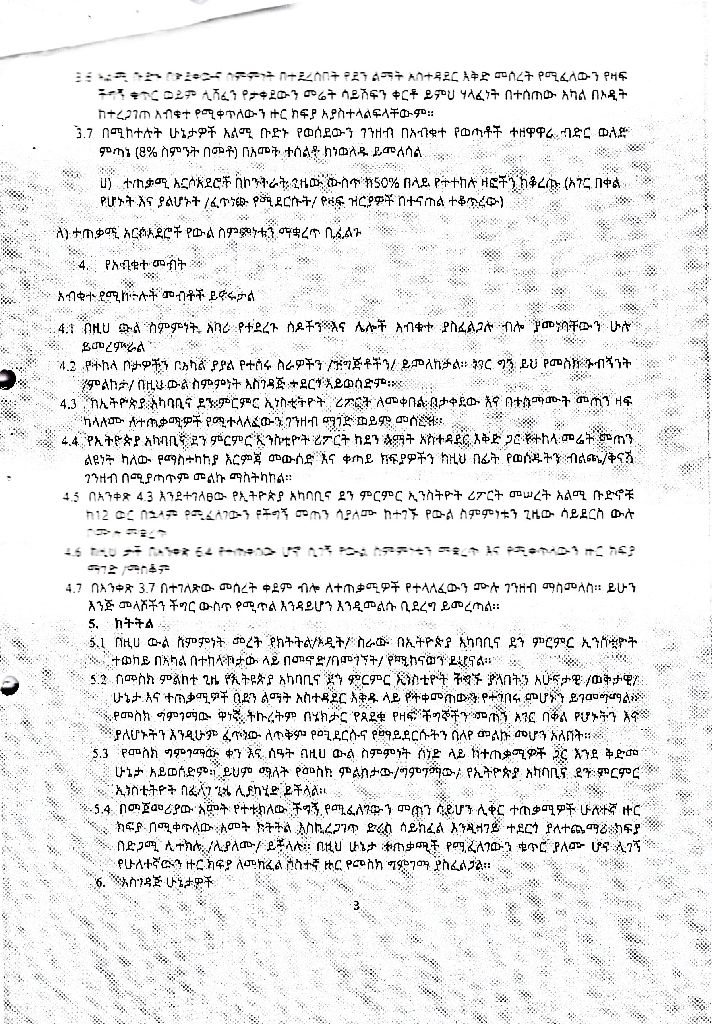 3.6 አልሚ ቡድኑ በጽድቀውና ስምምነት በተደረሰበት የደን ልማት አስተዳደር እቅድ መሰረት የሚፈለውን የዛፍ
ችግኝ ቁጥር ወይም ሊሸፈን የታቀደውን መሬት ሳይሸፍን ቀርቶ ይምህ ሃላፈነት በተሰጠው አካል በኦዲት
ከተረጋገጠ አብቁተ የሚቀጥለውን ዙር ክፍያ አያስተላልፍላቸውም።
3.7 በሚከተሉት ሁኔታዎች አልሚ ቡድኑ የወሰደውን ገንዘብ በአብቁተ የወጣቶች ተዘዋዋሪ ብድር ወለድ
ምጣኔ (8% ስምንት በመቶ) በአመት ተሰልቶ ከነወለዱ ይመለሳል
ሀ) ተጠቃሚ አርሶአደሮች በኮንትራት ጊዜው ውስጥ ከ50% በላይ የተተከሉ ዛፎችን ከቆረጡ (አገር በቀል
የሆኑት እና ያልሆኑት /ፈጥነው የሚደርሱት/ የዛፍ ዝርያዎች በተናጠል ተቆጥረው)
ለ) ተጠቃሚ አርሶአደሮች የውል ስምምነቱን ማቋረጥ ቢፈልጉ
4. የአብቁተ መብት
አብቁተ የሚከተሉት መብቶች ይኖሩታል
4.1 በዚህ ውል ስምምነት አባሪ የተደረጉ ሰዶችን እና ሌሎች አብቁተ ያስፈልጋሉ ብሎ ያመነባቸውን ሁሉ
ይመረምራል
4.2 የተከላ ቦታዎችን በአካል ያያል የተሰሩ ስራዎችን /ዝግጅቶችን/ ይመለከታል። ነገር ግን ይህ የመስክ ጉብኝንት
/ምልከታ/ በዚህ ውል ስምምነት አስገዳጅ ተደርጎ አይወሰድም።
4.3 ከኢትዮጵያ አካባቢና ደን ምርምር ኢነስቲትዮት ሪፖርት ለመቀበል በታቀደው እና በተስማሙት መጠን ዛፍ
ካላለሙ ለተጠቃሚዎች የሚተላለፈውን ገንዘብ ማገድ ወይም መሰረዝ።
4.4 የኢትዮጵያ አካባቢና ደን ምርምር ኢንስቲዮት ሪፖርት ከደን ልማት አስተዳደር እቅድ ጋር የተከላ መሬት መጠን
ልዩነት ካለው የማስተካከያ እርምጃ መውሰድ እና ቀጣይ ክፍያዎችን ከዚህ በፊት የወሰዱትን ብልጫ/ቅናሽ
ገንዘብ በሚያጣጥም መልኩ ማስትካከል።
4.5 በአንቀጽ 4.3 እንደተገለፀው የኢትዮጵያ አካባቢና ደን ምርምር ኢንስትዮት ሪፖርት መሠረት አልሚ ቡድኖቹ
ከ12 ወር በኋላም የሚፈለገውን የችግኝ መጠን ሳያለሙ ከተገኙ የውል ስምምነቱን ጊዜው ሳይደርስ ውሉ
በሙሉ ማቋረጥ
4.6 ከዚህ ታች በአንቀጽ 6.4 የተጠቀሰው ሆኖ ሲገኝ የውል ስምምነቱን ማቋረጥ እና የሚቀጥላውን ዙር ክፍያ
ማገድ /ማስቆም
4.7 በአንቀጽ 3.7 በተገለጽው መሰረት ቀደም ብሎ ለተጠቃሚዎች የተላለፈውን ሙሉ ገንዘብ ማስመለስ። ይሁን
እንጅ መላሾችን ችግር ውስጥ የሚጥል እንዳይሆን እንዲመልሱ ቢደረግ ይመረጣል።
5. ክትትል
5.1 በዚህ ውል ስምምነት መረት የክትትል/ኦዲት/ ስራው በኢትዮጵያ አካባቢና ደን ምርምር ኢንስቲዮት
ተወካይ በአካል በተከላ ቦታው ላይ በመኖድ/በመገኘት/ የሚከናወን ይሆናል።
5.2 በመስክ ምልከተ ጊዜ የኢትዩጵያ አካባቢና ደን ምርምር ኢነስቲዮት ችግኙ ያለበትን አሁናታዊ /ወቅታዊ/
ሁኔታ እና ተጠቃሚዎች በደን ልማት አስተዳደር እቅዱ ላይ የተቀመጠውን የተገበሩ መሆኑን ይገመግማል።
የመስክ ግምገማው ዋነኛ ትኩረትም በሄክታር የጸደቁ የዛፍ ችግኞችን መጠን አገር በቀል የሆኑትን እና
ያለሆኑትን እንዲሁም ፈጥነው ለጥቅም የሚደርሱና የማይደርሱትን በለየ መልኩ መሆን አለበት።
5.3 የመስክ ግምገማው ቀን እና ሰዓት በዚህ ውል ስምምነት ሰነድ ላይ ከተጠቃሚዎች ጋር እንደ ቅድመ
ሁኔታ አይወሰድም። ይህም ማለት የመስክ ምልከታው/ግምገማው/ የኢትዮጵያ አካባቢና ደን ምርምር
ኢነስቲትዮት በፈለገ ጊዜ ሊያከሂድ ይችላል።
5.4 በመጀመሪያው አመት የተተከለው ችግኝ የሚፈለገውን መጠን ሳይሆን ሊቀር ተጠቃሚዎች ሁለተኛ ዙር
ክፍያ በሚቀጥለው አመት ክትትል እስኪረጋገጥ ድረስ ሳይከፈል እንዲዛገይ ተደርጎ ያለተጨማሪ ክፍያ
በድጋሚ ሊተክሉ /ሊያለሙ/ ይችላሉ። በዚህ ሁኔታ ቀጠቃሚች የሚፈለገውን ቁጥር ያለሙ ሆኖ ሲገኝ
የሁለተኛውን ዙር ክፍያ ለመክፈል ሶስተኛ ዙር የመስክ ግምገማ ያስፈልጋል።
6. አስገዳጅ ሁኔታዎች
3